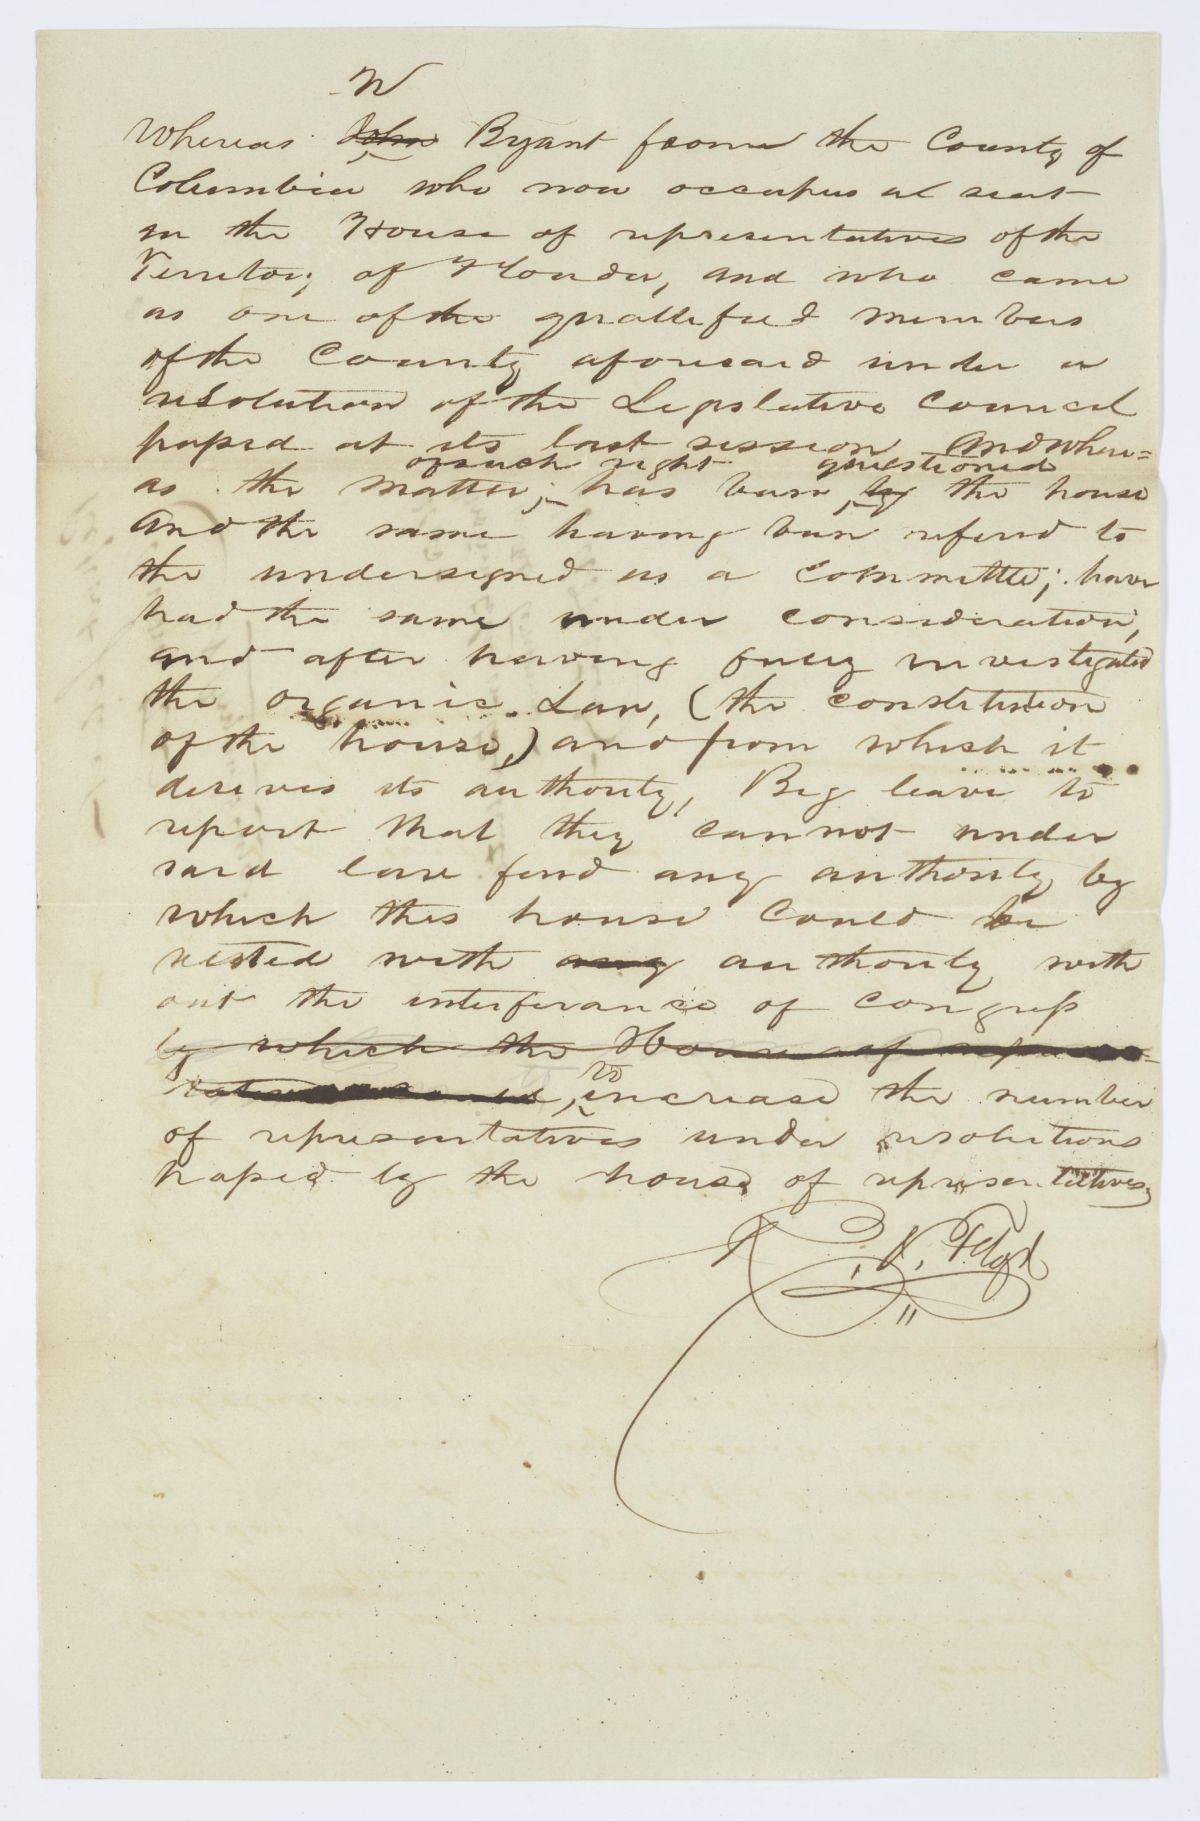 W
Whereas John Byant from the County of
Columbia who now occupies al seat
in the House of representatives of the
Territory of Florida, and who came
as one of the quallefied members
of the County aforesaid under a
resolution of the Legislative Council
passed at its last session And wher=
of such right questioned
as the matter; has been by the house
And the same having been referd to
the undersigned as a committee; have
had the same under consideration,
and after having fully investigated
the organic Law, (the constitution
of the house,) and from which it
derives its authority, Beg leave to
report that they cannot under
said law find any authority by
which this house could be
vested with any authority with
out the interferance of congress
by which the House of repres=
to
increase the number
of representatives under resolutions
passed by the house of representatives
N. Floyd